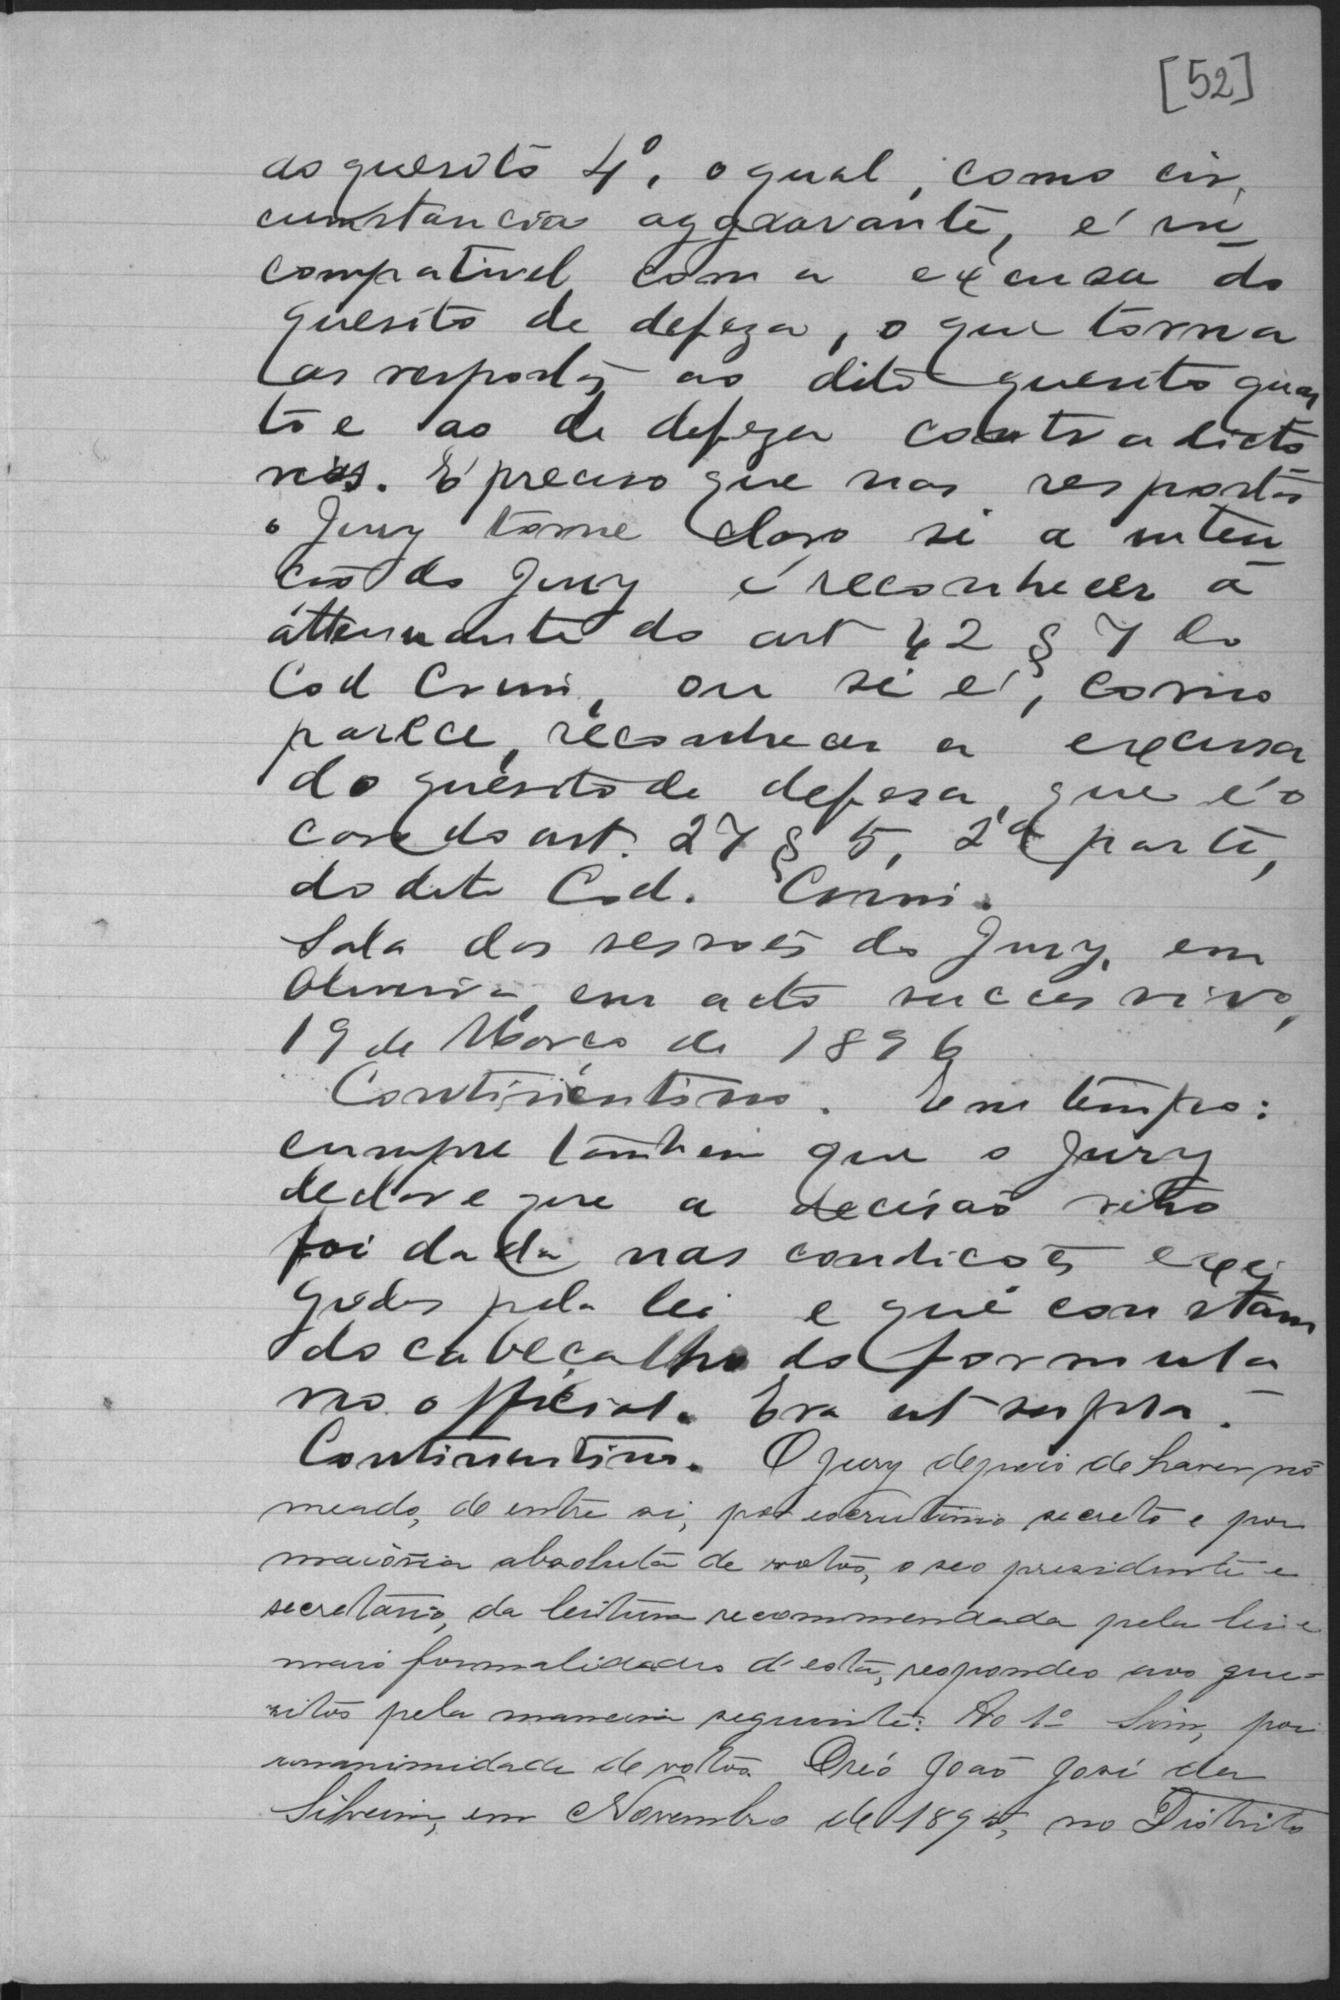 [52]
ao quesito 4º, o qual, como cir
cumstancia aggravante, é in
compativel com a excusa do
quesito de defeza, o que torna
as respostas ao dito quesito quar
to e ao de defeza contradicto
rios. É preciso que nas respostas
o Jury torne claro si a inten
ção do Jury é reconhecer a
attenuante do art 42 § 7 do
Cod Crim, ou si é, como
parece, reconhecer a excusa
do quesito de defesa, que é o
caso do art. 27 § 5, 2ª parte,
do dito Cod. Crim.
Sala das sessões do Jury, em
Oliveira, em acto successivo,
19 de Março de 1896
Continentino. Em tempo:
cumpre tambem que o Jury
declare que a decisão
foi dada nas condicões exi
gidas pela lei e que constam
do cabeçalho do formula
rio official. Era ut supra.
Continentino. O Jury depois de haver no
meado, de entre si, por escrutinio secreto e por
maioria absoluta de votos, o seo presidente e
secretario, da leitura recommendada pela lei e
mais formalidades d'esta, respondeo aos que-
sitos pela maneira seguinte: Ao 1º Sim, por
unanimidade de votos. O reó João José da
Silveira, em Novembro de 1895, no Districto